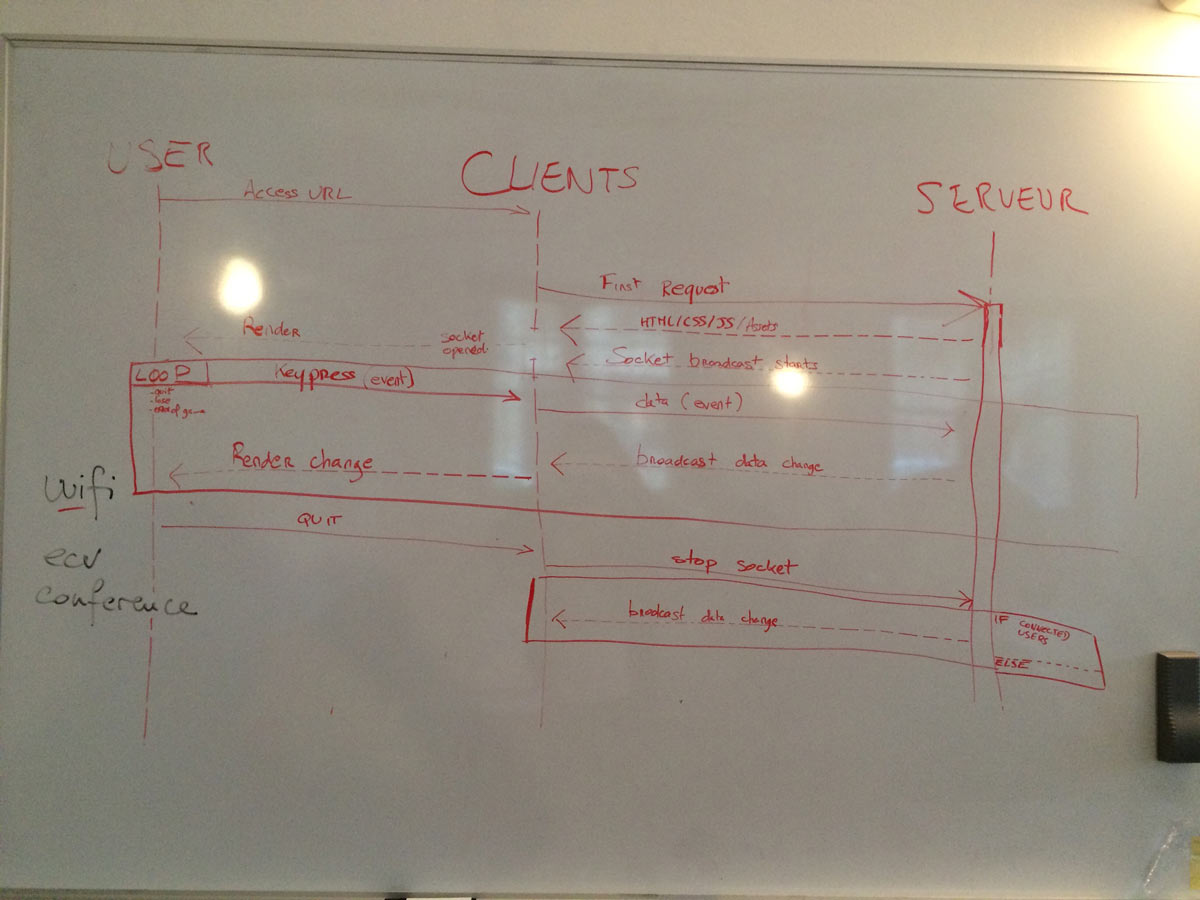 USER
CLIENTS
SERVEUR
Access URL
First Request
HTML/CSS/JS/Assets
Render
socket
opened
Socket broadcast starts
LOOP
Keypress (event)
-quit
-lose
-end of game
data (event)
Render change
broadcast data change
wifi
QUIT
ecv
conference
stop socket
broadcast data change
IF CONNECTED
USERS
ELSE